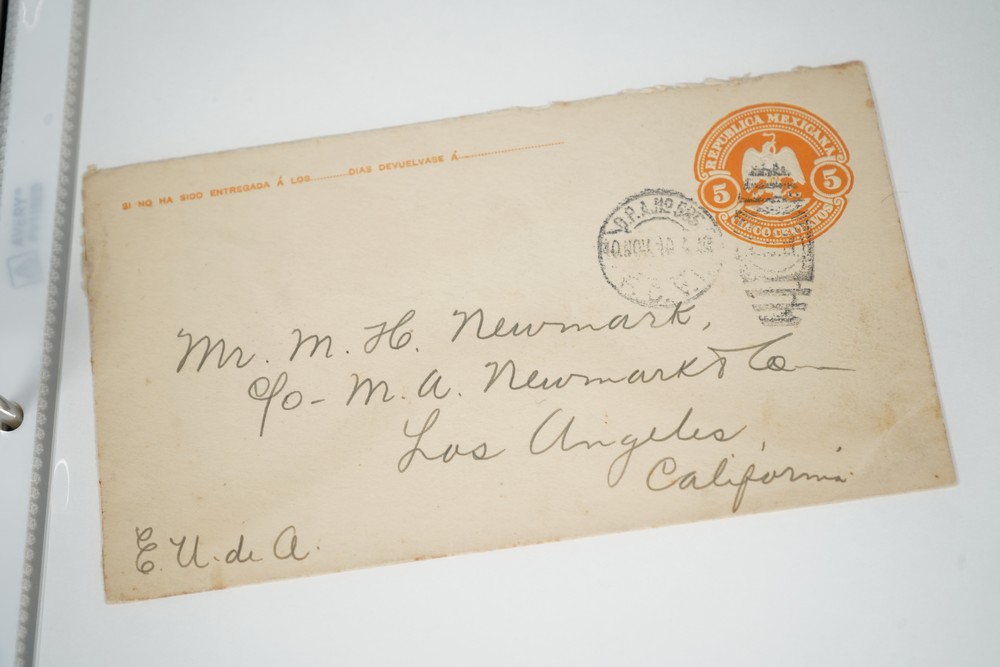 SI NO HA SIDO ENTREGADA Á LOS........DIAS DEVUELVASE Á........
REPUBLICA MEXICANA
5 5
CINCO CENTAVOS
Mr. M. H. Newmark,
c/o - M. A. Newmark & Co
Los Angeles,
California.
E. U. de A.